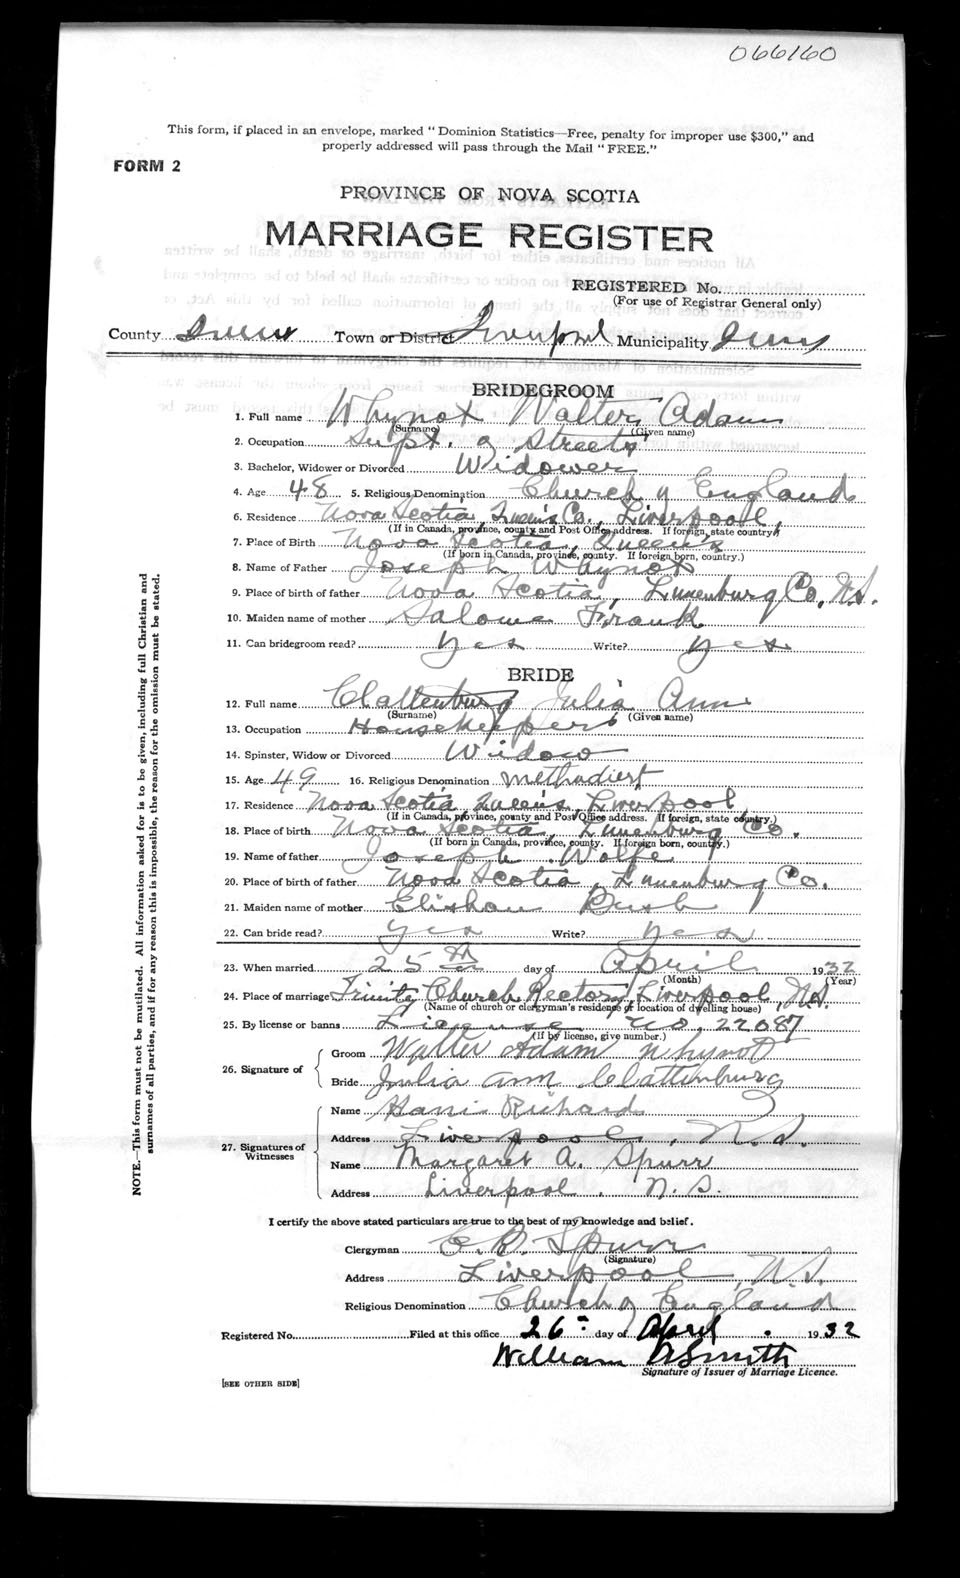 066160
This form, if placed in an envelope, marked "Dominion Statistics—Free, penalty for improper use $300," and
properly addressed will pass through the Mail "FREE."
FORM 2
PROVINCE OF NOVA SCOTIA
MARRIAGE REGISTER
REGISTERED No.
(For use of Registrar General only)
County Queens Town or District Liverpool Municipality Queens
BRIDEGROOM
1. Full name Whynot Walter Adam
(Surname) (Given name)
2. Occupation Supt. of Streets
3. Bachelor, Widower or Divorced Widower
4. Age 48 5. Religious Denomination Church of England
6. Residence Nova Scotia, Queen's Co., Liverpool,
(If in Canada, province, county and Post Office address. If foreign, state country)
7. Place of Birth Nova Scotia, Queen's
(If born in Canada, province, county. If foreign born, country.)
8. Name of Father Joseph Whynot
9. Place of birth of father Nova Scotia, Lunenburg Co, N.S.
10. Maiden name of mother Salome Frank
11. Can bridegroom read? Yes Write? Yes
BRIDE
12. Full name Clattenburg Julia Ann
(Surname) (Given name)
13. Occupation Housekeeper
14. Spinster, Widow or Divorced Widow
15. Age 49 16. Religious Denomination Methodist
17. Residence Nova Scotia, Queen's, Liverpool
(If in Canada, province, county and Post Office address. If foreign, state country.)
18. Place of birth Nova Scotia, Lunenburg Co.
(If born in Canada, province, county. If foreign born, country.)
19. Name of father Joseph Wolfe
20. Place of birth of father Nova Scotia, Lunenburg Co.
21. Maiden name of mother Bush
22. Can bride read? Yes Write? Yes
23. When married 25th day of April 1932
(Month) (Year)
24. Place of marriage Trinity Church Rectory, Liverpool, N.S.
(Name of church or clergyman's residence or location of dwelling house)
25. By license or banns License No. 22087
(If by license, give number.)
26. Signature of
Groom Walter Adam Whynot
Bride Julia Ann Clattenburg
27. Signatures of Witnesses
Name Richards
Address Liverpool, N.S.
Name Margaret A. Spurr
Address Liverpool, N.S.
I certify the above stated particulars are true to the best of my knowledge and belief.
Clergyman C. B. Spurr
(Signature)
Address Liverpool, N.S.
Religious Denomination Church of England
Registered No. Filed at this office 26 day of April 1932
William Smith
Signature of Issuer of Marriage Licence.
[SEE OTHER SIDE]
NOTE.—This form must not be mutilated. All information asked for is to be given, including full Christian and
surnames of all parties, and if for any reason this is impossible, the reason for the omission must be stated.